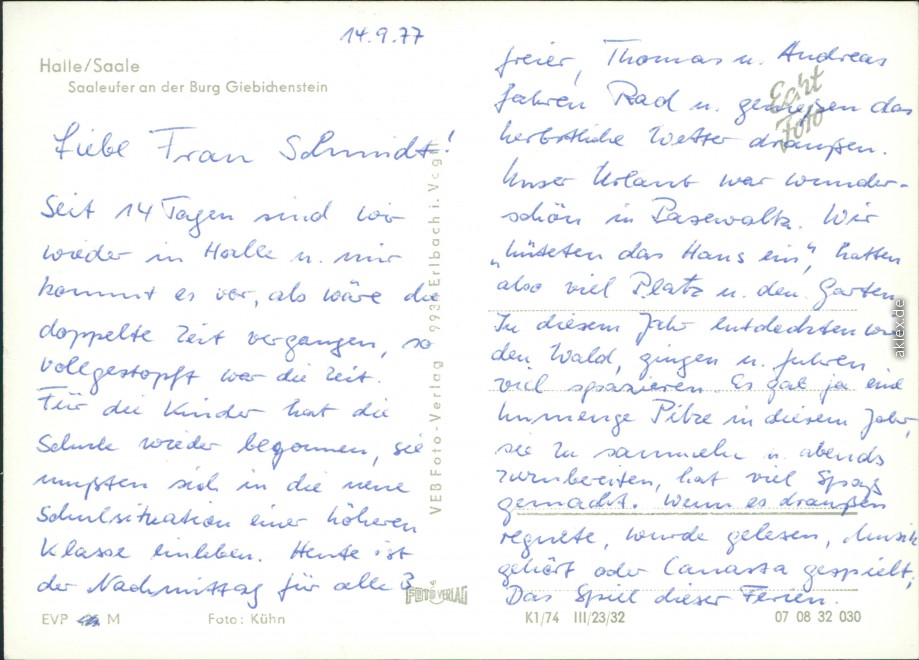 14.9.77
Halle/Saale
Saaleufer an der Burg Giebichenstein
Liebe Frau Schmidt!
Seit 14 Tagen sind wir
wieder in Halle u. mir
kommt es vor, als wäre die
doppelte Zeit vergangen, so
vollgestopft war die Zeit.
Für die Kinder hat die
Schule wieder begonnen, sie
mußten sich in die neue
Schulsituation einer höheren
Klasse einleben. Heute ist
der Nachmittag für alle 3
EVP M
Foto: Kühn
VEB Foto-Verlag 993 Erlbach i. Vogtl
FOTO VERLAG
freier, Thomas u. Andreas
fahren Rad u. genießen das
herbstliche Wetter draußen.
Echt
Foto
Unser Urlaub war wunder-
schön in Pasewalk. Wir
„hüteten das Haus ein", hatten
also viel Platz u. den Garten.
In diesem Jahr entdeckten wir
den Wald, gingen u. fuhren
viel spazieren. Es gab ja eine
Unmenge Pilze in diesem Jahr,
sie zu sammeln u. abends
zuzubereiten, hat viel Spaß
gemacht. Wenn es draußen
regnete, wurde gelesen, Musik
gehört oder Canasta gespielt,
Das Spiel dieser Ferien.
K1/74 III/23/32
07 08 32 030
aklex.de